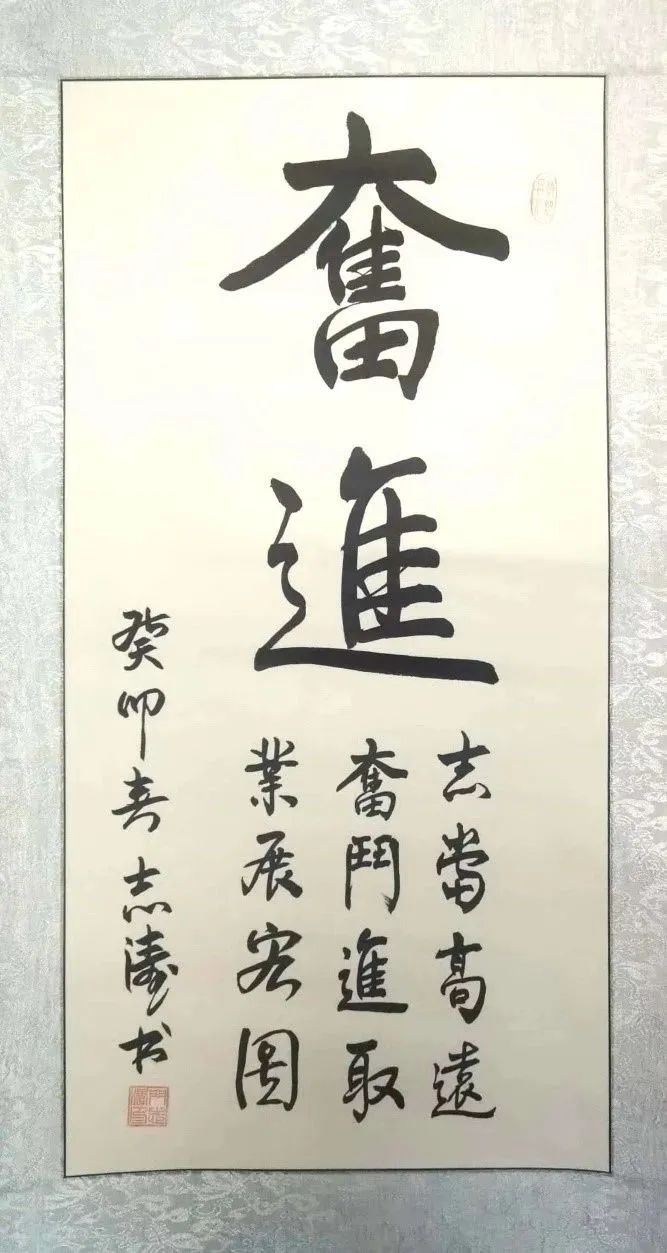 奮進
志當高遠
奮鬥進取
業展宏圖
癸卯春志濤书